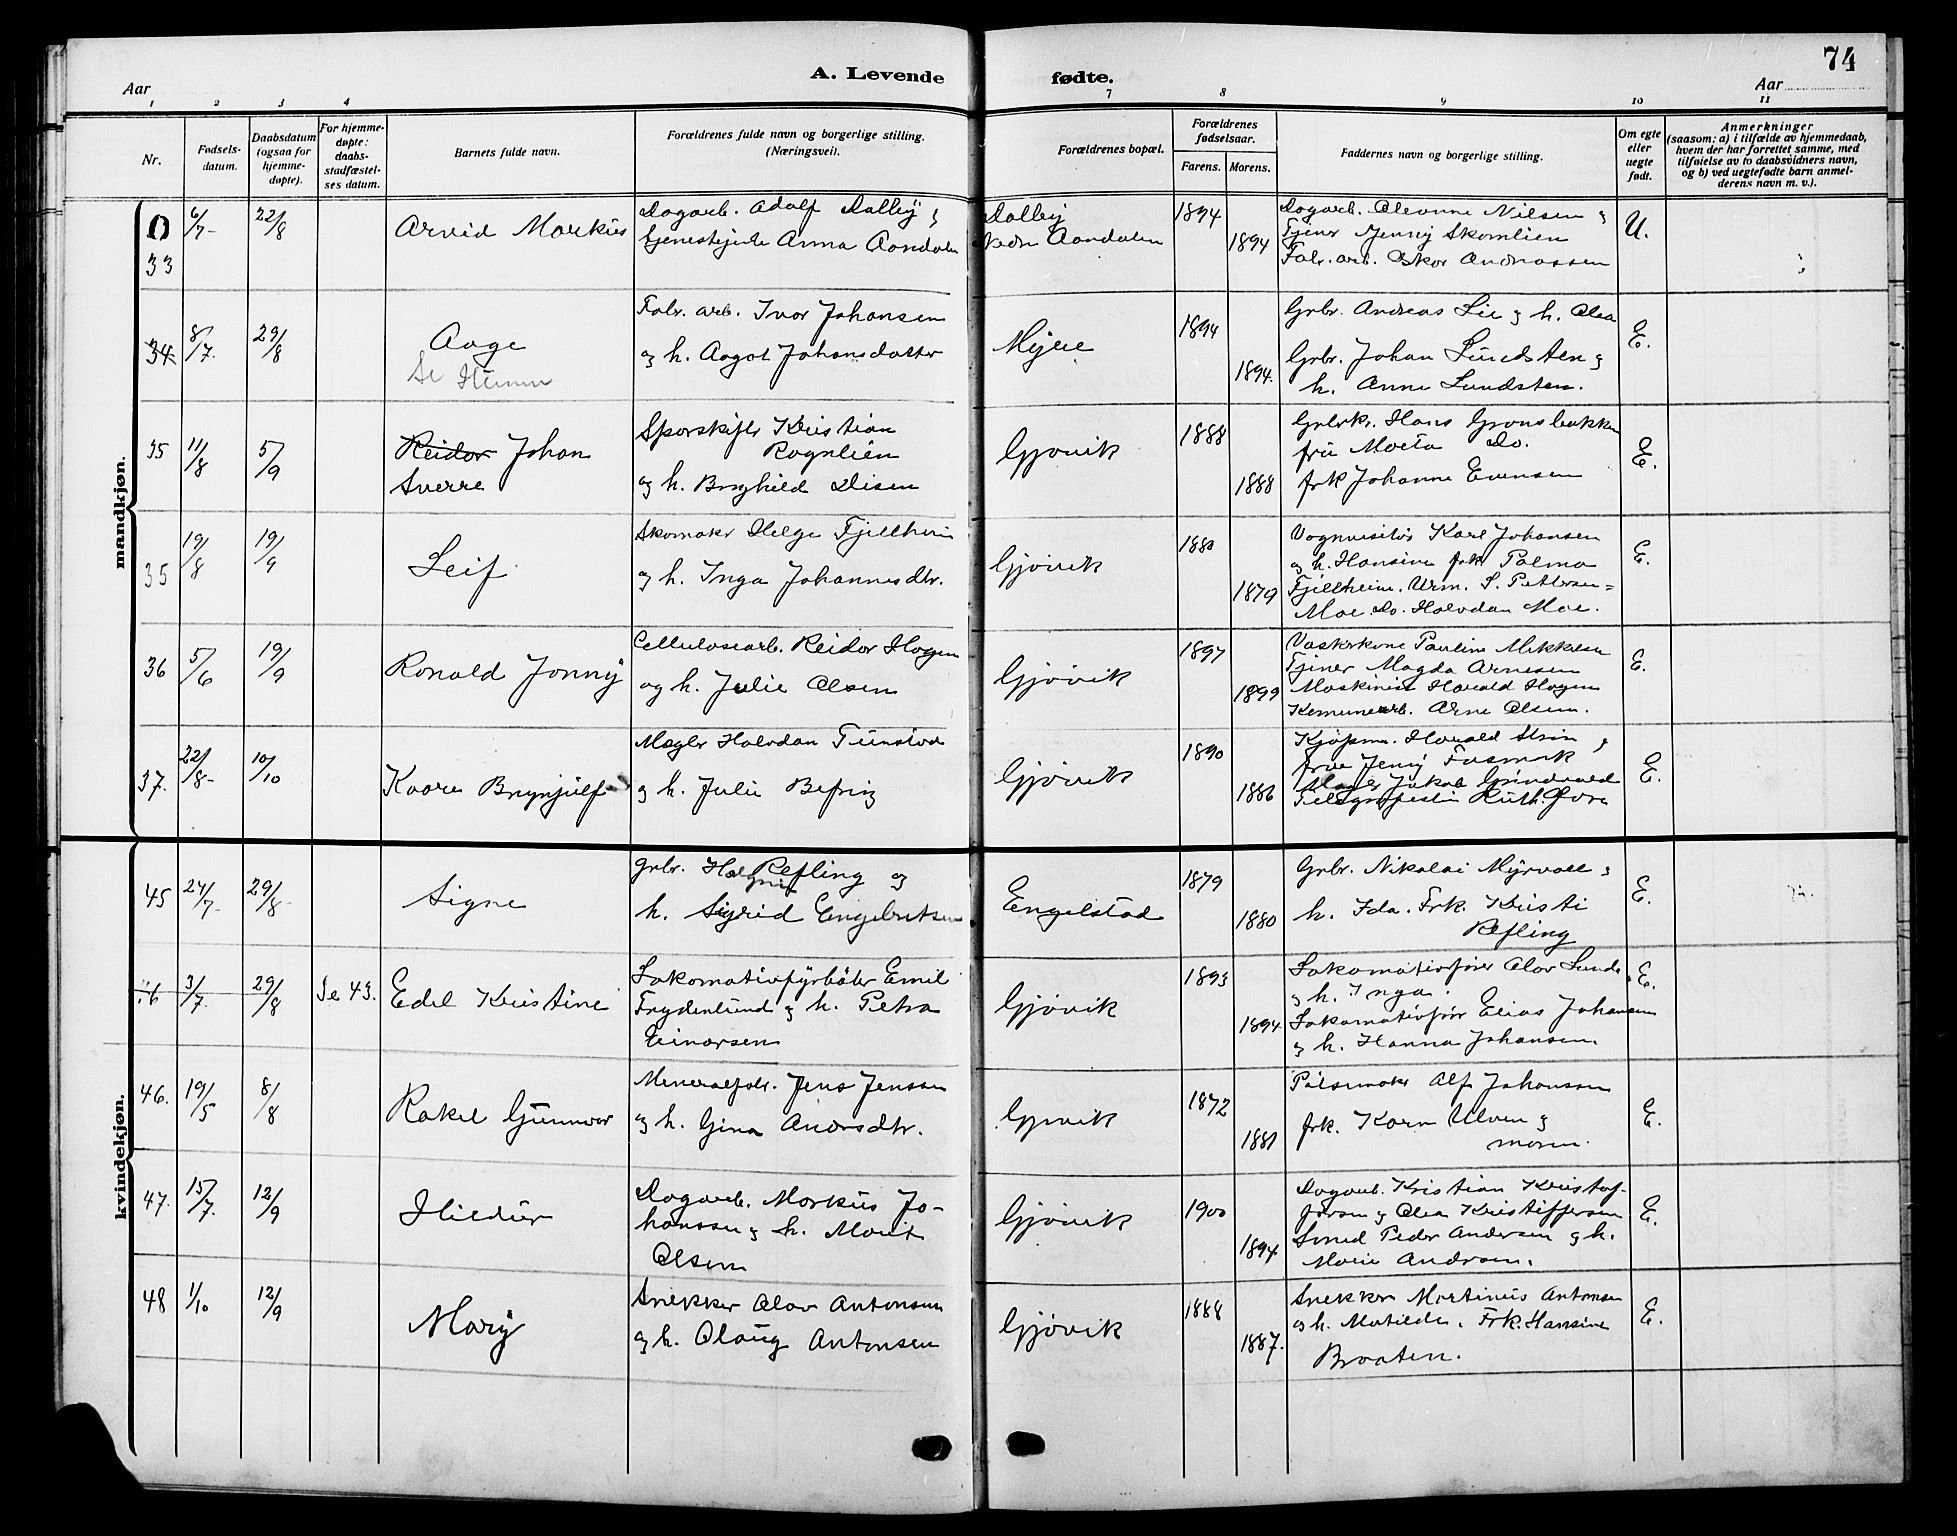 74
A. Levende fødte.
Aar
Aar
1 2 3 4 7 8 9 10 11
Nr.
Fødsels-
datum.
Daabsdatum
(ogsaa for
hjemme-
døpte).
For hjemme-
døpte:
daabs-
stadfæstel-
ses datum.
Barnets fulde navn.
Forældrenes fulde navn og borgerlige stilling.
(Næringsvei).
Forældrenes bopæl.
Forældrenes
fødselsaar.
Farens. Morens.
Faddernes navn og borgerlige stilling.
Om egte
eller
uegte
født.
Anmerkninger
(saasom: a) i tilfælde av hjemmedaab,
hvem der har forrettet samme, med
tilføielse av to daabsvidners navn,
og b) ved uegtefødte barn anmel-
derens navn m. v.).
mandkjøn.
33
6/7
22/8
Arvid Markus
Dagarb. Adolf Dalby &
tjenestepike Anna Aandalen
Dalby
Aandalen
1894
1894
Dagarb. Oleanne Nilsen &
Tjener Jenny Skomlien
Fabr. arb. Andreassen
U.
34
8/7
29/8
Aage
Fabr. arb. Ivar Johansen
og h. Aagot Johansdatter
1894
1894.
Grbr. Andreas Lie & h. Olea
Grbr. Johan Lundsten &
h. Anne Lundsten.
E.
35
11/8
5/9
Reidar Johan
Sverre
Sporskifter Kristian
Rognlien
og h. Borghild Disen
Gjøvik
1888
1888
Hans Gronsbakken
fru Do.
frk Johanne Evensen
E.
35
19/8
19/9
Leif
Skomaker Helge Fjellheim
og h. Inga Johannesdtr.
Gjøvik
1880
1879
Vognvisitør Karl Johansen
og h. Hansine frk Palma
Fjellheim. Urm. S. Pettersen
Moe Do. Halvdan Moe.
E.
36
5/6
19/9
Ronald Jonny
Cellulosearb. Reidar Hagen
og h. Julie Olsen
Gjøvik
1897
1899
Vaskekone Pauline Mikkelsen
Tjener Magda Arnesen
Maskinist Harald Hagen
Kommunearb. Arne Olsen.
E.
37.
22/8
10/10
Kaare Brynjulf
Megler Halvdan Tunstad
og h. Julie Befring
Gjøvik
1890
1886
Kjøpm. Harald Strøm &
frue Jenny
Jakob
Telegrafistin Ruth
E.
kvindekjøn.
45
24/7
29/8
Signe
Grbr. Refling og
h. Sigrid Engebretsen
Engelstad
1879
1880
Grbr. Nikolai Myrvold &
h. Ida. Frk. Kristi
Refling
E.
46
3/7.
29/8
Se 43.
Edel Kristine
Lokomotivfyrbøter Emil
Frydenlund & h. Petra
Einarsen
Gjøvik
1893
1894
Lokomotivfører Olav Lunde
& h. Inga.
Lokomotivfør Elias Johansen
& h. Hanna Johansen.
E.
46.
19/5
8/8
Rakel Gunnvor
Mineralfabr. Jens Jenssen
og h. Gina Andersdtr.
Gjøvik
1872
1881
Pølsemaker Alf Johanssen
frk. Karn Ulven &
moren.
E.
47.
15/7.
12/9
Hildur
Dagarb. Markus Jo-
hanssen & h. Marit
Olsen
Gjøvik
1900
1894
Dagarb. Kristian Kristof-
fersen & Olea Kristiffersen
Smed Peder Andersen & h.
Marie Andersen.
E.
48
1/10
12/9
Mary
Snekker Olav Antonsen
og h. Olaug Antonsen
Gjøvik
1888
1887.
Snekker Martinus Antonsen
og h. Matilde. Frk. Hansine
Braaten.
E.